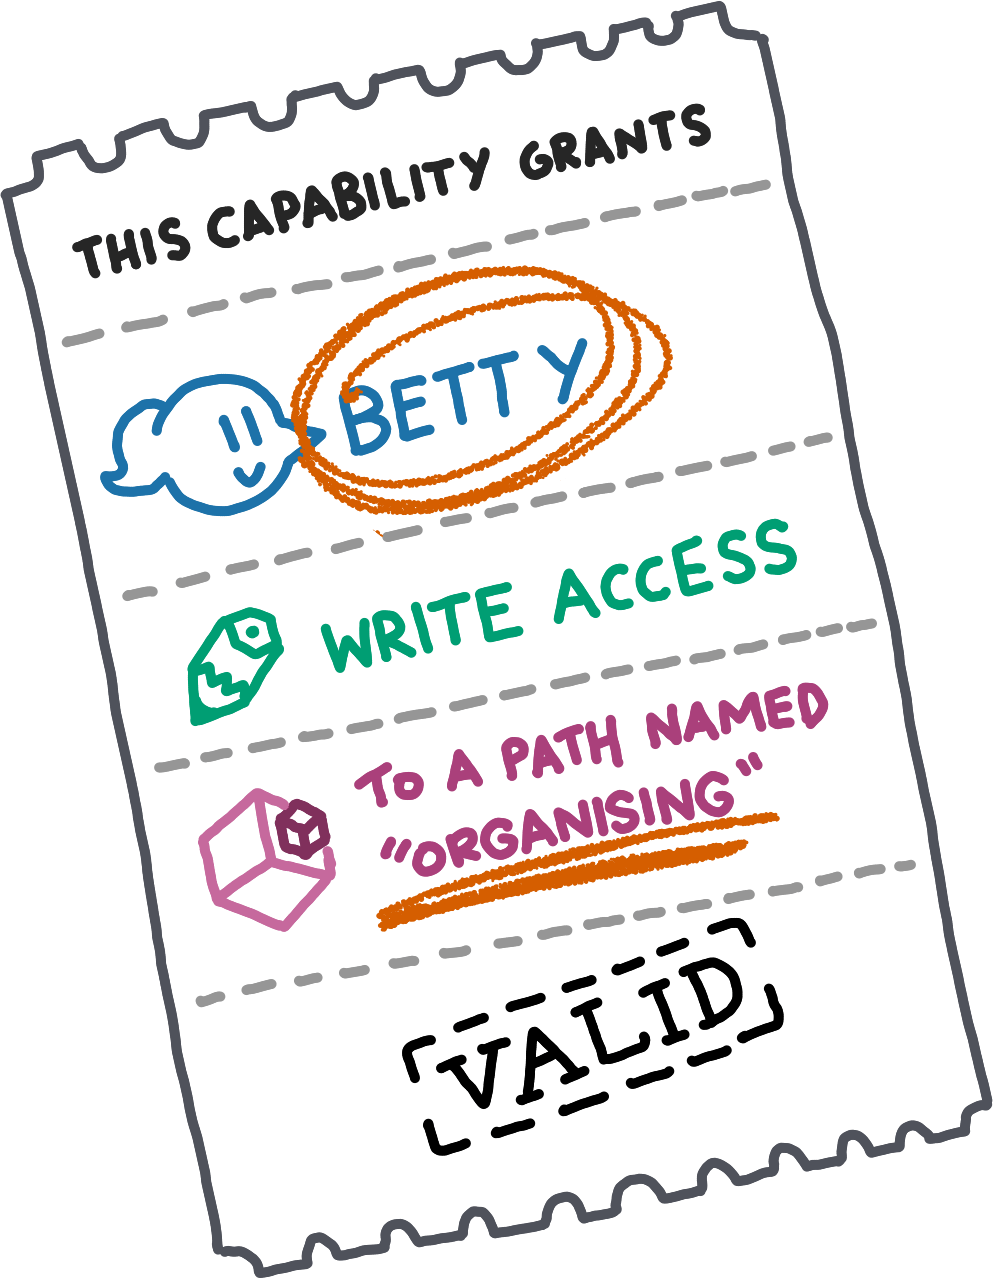 THIS CAPABILITY GRANTS
BETTY
WRITE ACCESS
TO A PATH NAMED
"ORGANISING"
VALID